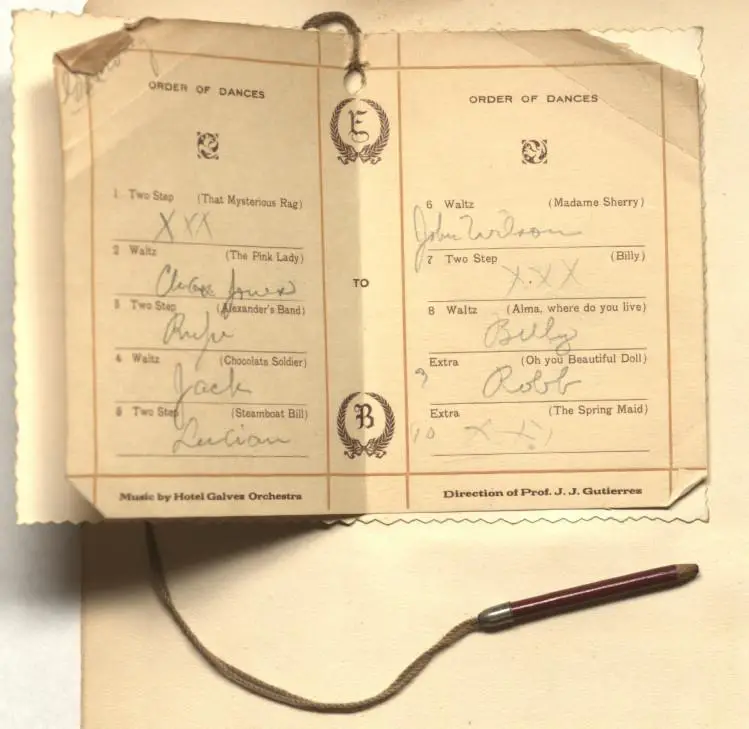 ORDER OF DANCES
1 Two Step (That Mysterious Rag)
XXX
2 Waltz (The Pink Lady)
Jones
3 Two Step (Alexander's Band)
Rufe
4 Waltz (Chocolate Soldier)
Jack
5 Two Step (Steamboat Bill)
Lucian
Music by Hotel Galvez Orchestra
E
TO
B
ORDER OF DANCES
6 Waltz (Madame Sherry)
John Wilson
7 Two Step (Billy)
X.X.X
8 Waltz (Alma, where do you live)
Billy
Extra (Oh you Beautiful Doll)
9 Robb
Extra (The Spring Maid)
10 X X
Direction of Prof. J. J. Gutierrez